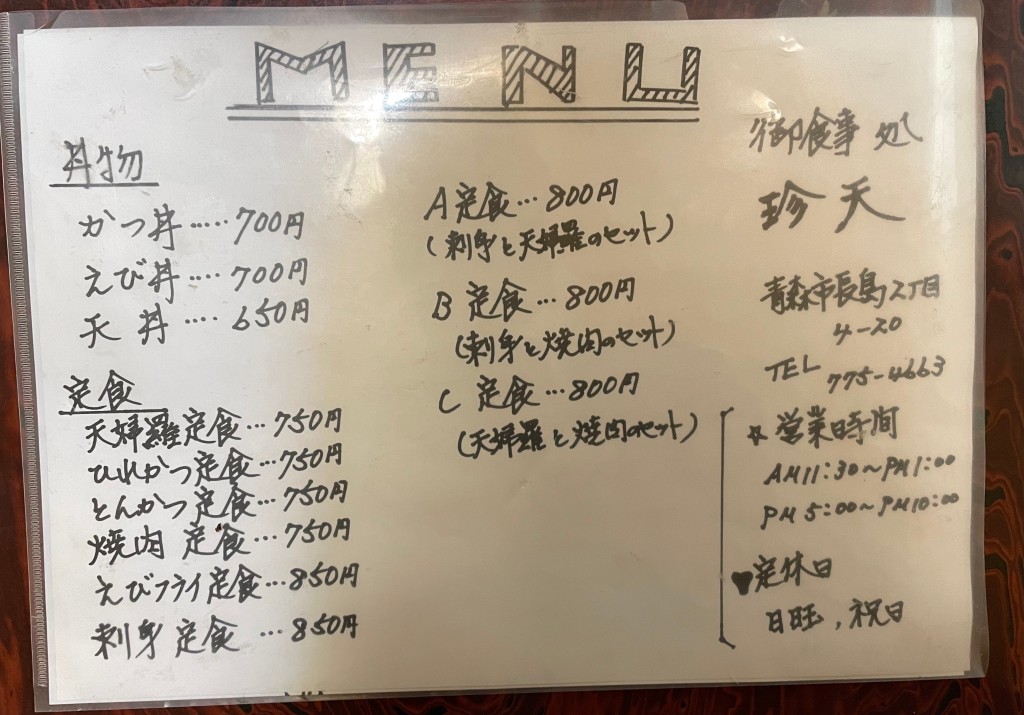 MENU
丼物
かつ丼‥‥‥700円
えび丼‥‥700円
天丼‥‥650円
定食
天婦羅定食…750円
ひれかつ定食…750円
とんかつ定食…750円
焼肉定食…750円
えびフライ定食…850円
刺身定食…850円
A定食…800円
(刺身と天婦羅のセット)
B定食…800円
(刺身と焼肉のセット)
C定食…800円
(天婦羅と焼肉のセット)
御食事処
珍天
青森市長島2丁目
4-20
TEL 775-4663
☆営業時間
AM11:30~PM1:00
PM5:00~PM10:00
▼定休日
日旺,祝日